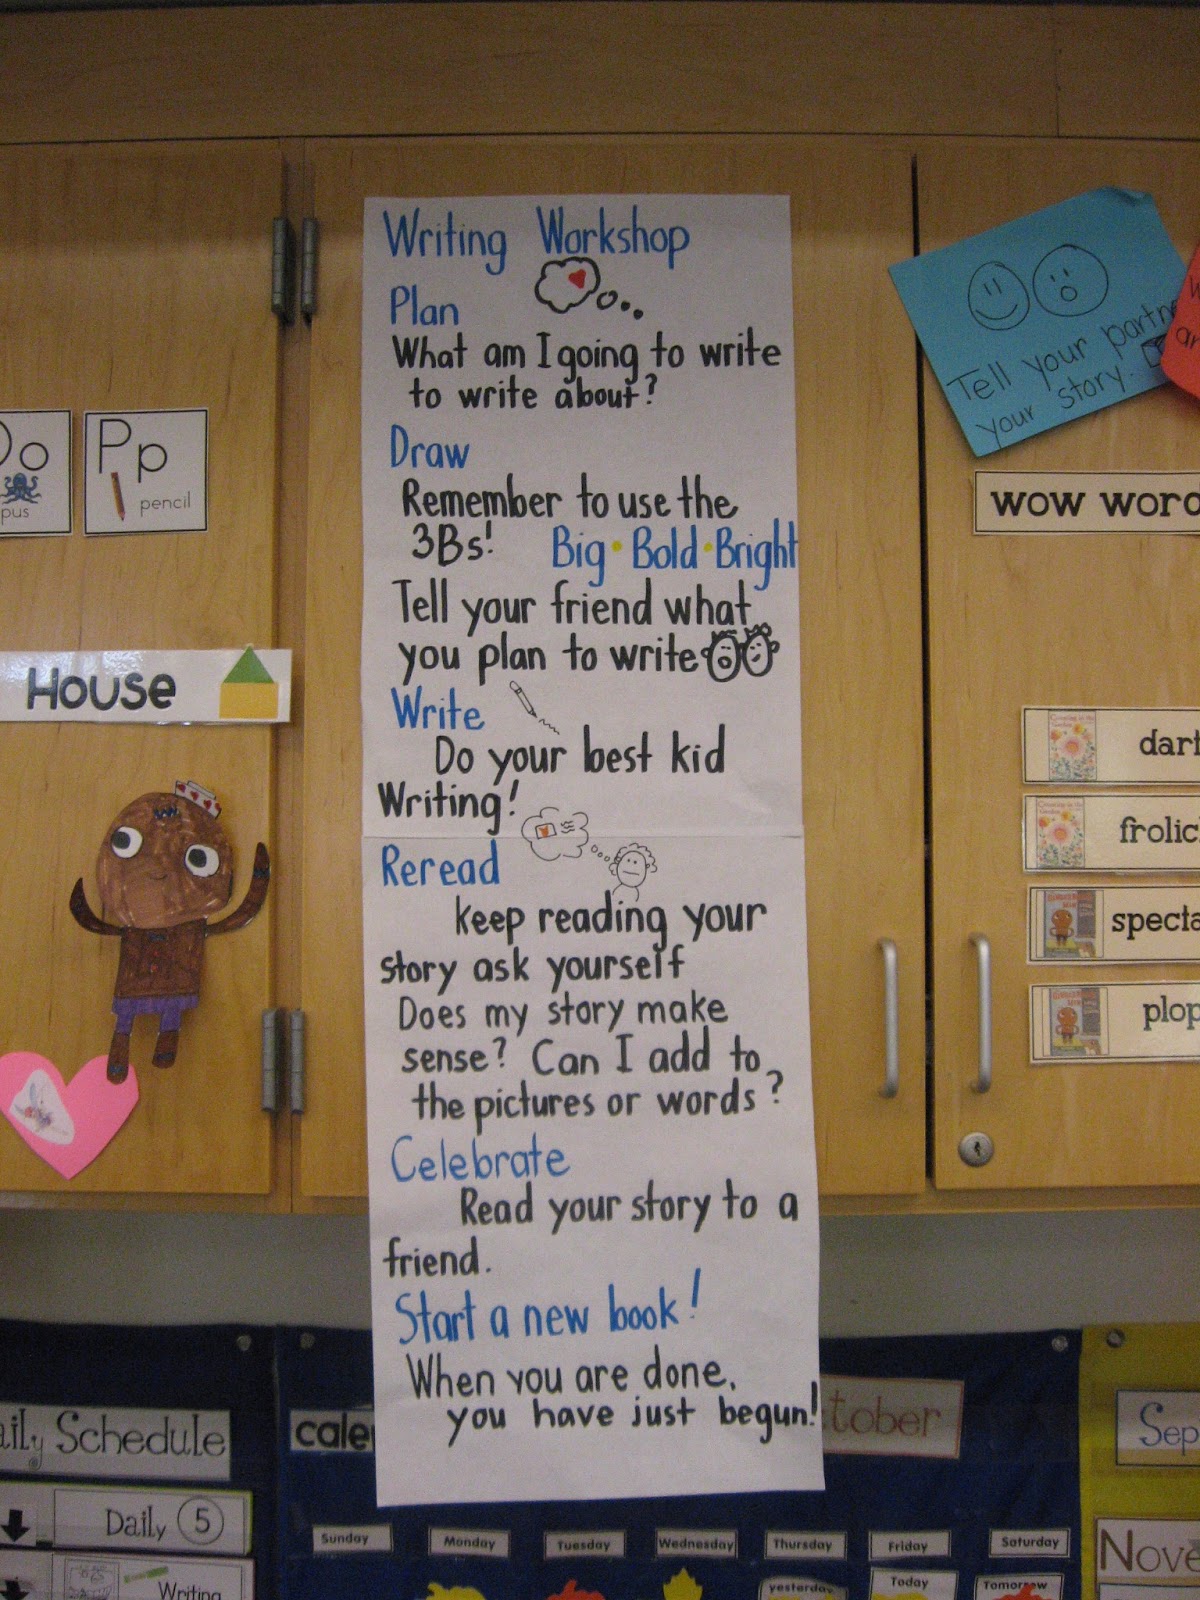 Writing Workshop
Plan
What am I going to write
to write about?
Draw
Remember to use the
3Bs! Big · Bold · Bright
Tell your friend what
you plan to write
Write
Do your best kid
Writing!
Reread
keep reading your
story ask yourself
Does my story make
sense? Can I add to
the pictures or words?
Celebrate
Read your story to a
friend.
Start a new book!
When you are done,
you have just begun!
Oo
pus
Pp
pencil
House
Tell your partne
your story.
wow word
dart
frolic
specta
plop
aily Schedule
Daily 5
Writing
cale
tober
Sep
Nove
Sunday
Monday
Tuesday
Wednesday
Thursday
Friday
Saturday
yesterday
Today
Tomorrow